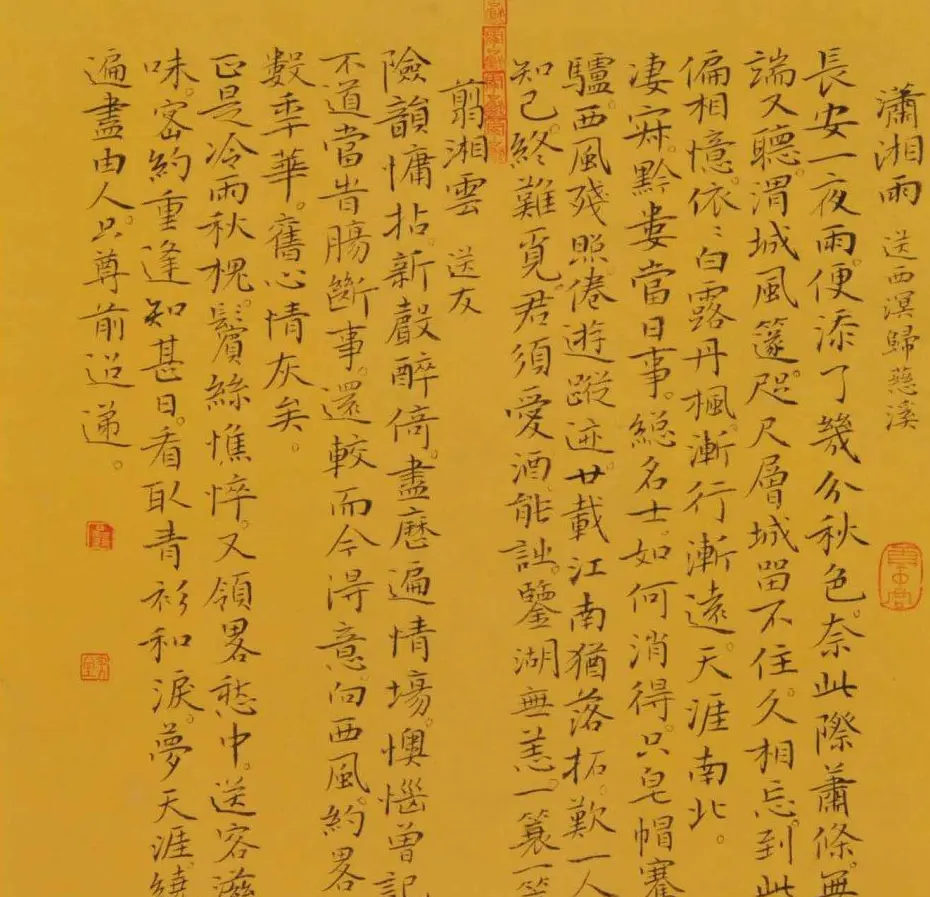 瀟湘雨 送西溟歸慈溪
長安一夜雨。便添了幾分秋色。奈此際蕭條。無
端又聽。渭城風篴。咫尺層城留不住。久相忘。到此
偏相憶。依〻白露丹楓。漸行漸遠。天涯南北。
淒寂。黔婁當日事。總名士。如何消得。只皂帽蹇
驢。西風殘照。倦遊蹤迹。廿載江南猶落拓。歎一人
知己。終難覓。君須愛酒能詩。鑒湖無恙。一蓑一笠
翦湘雲 送友
險韻慵拈。新聲醉倚。盡歷遍情場。懊惱曾記
不道當時腸斷事。還較而今得意。向西風。約畧
數年華。舊心情灰矣。
正是冷雨秋槐。鬢絲憔悴。又領畧愁中。送客滋
味。密約重逢知甚日。看取青衫和淚。夢天涯。繞
遍盡由人。只尊前迢遞。